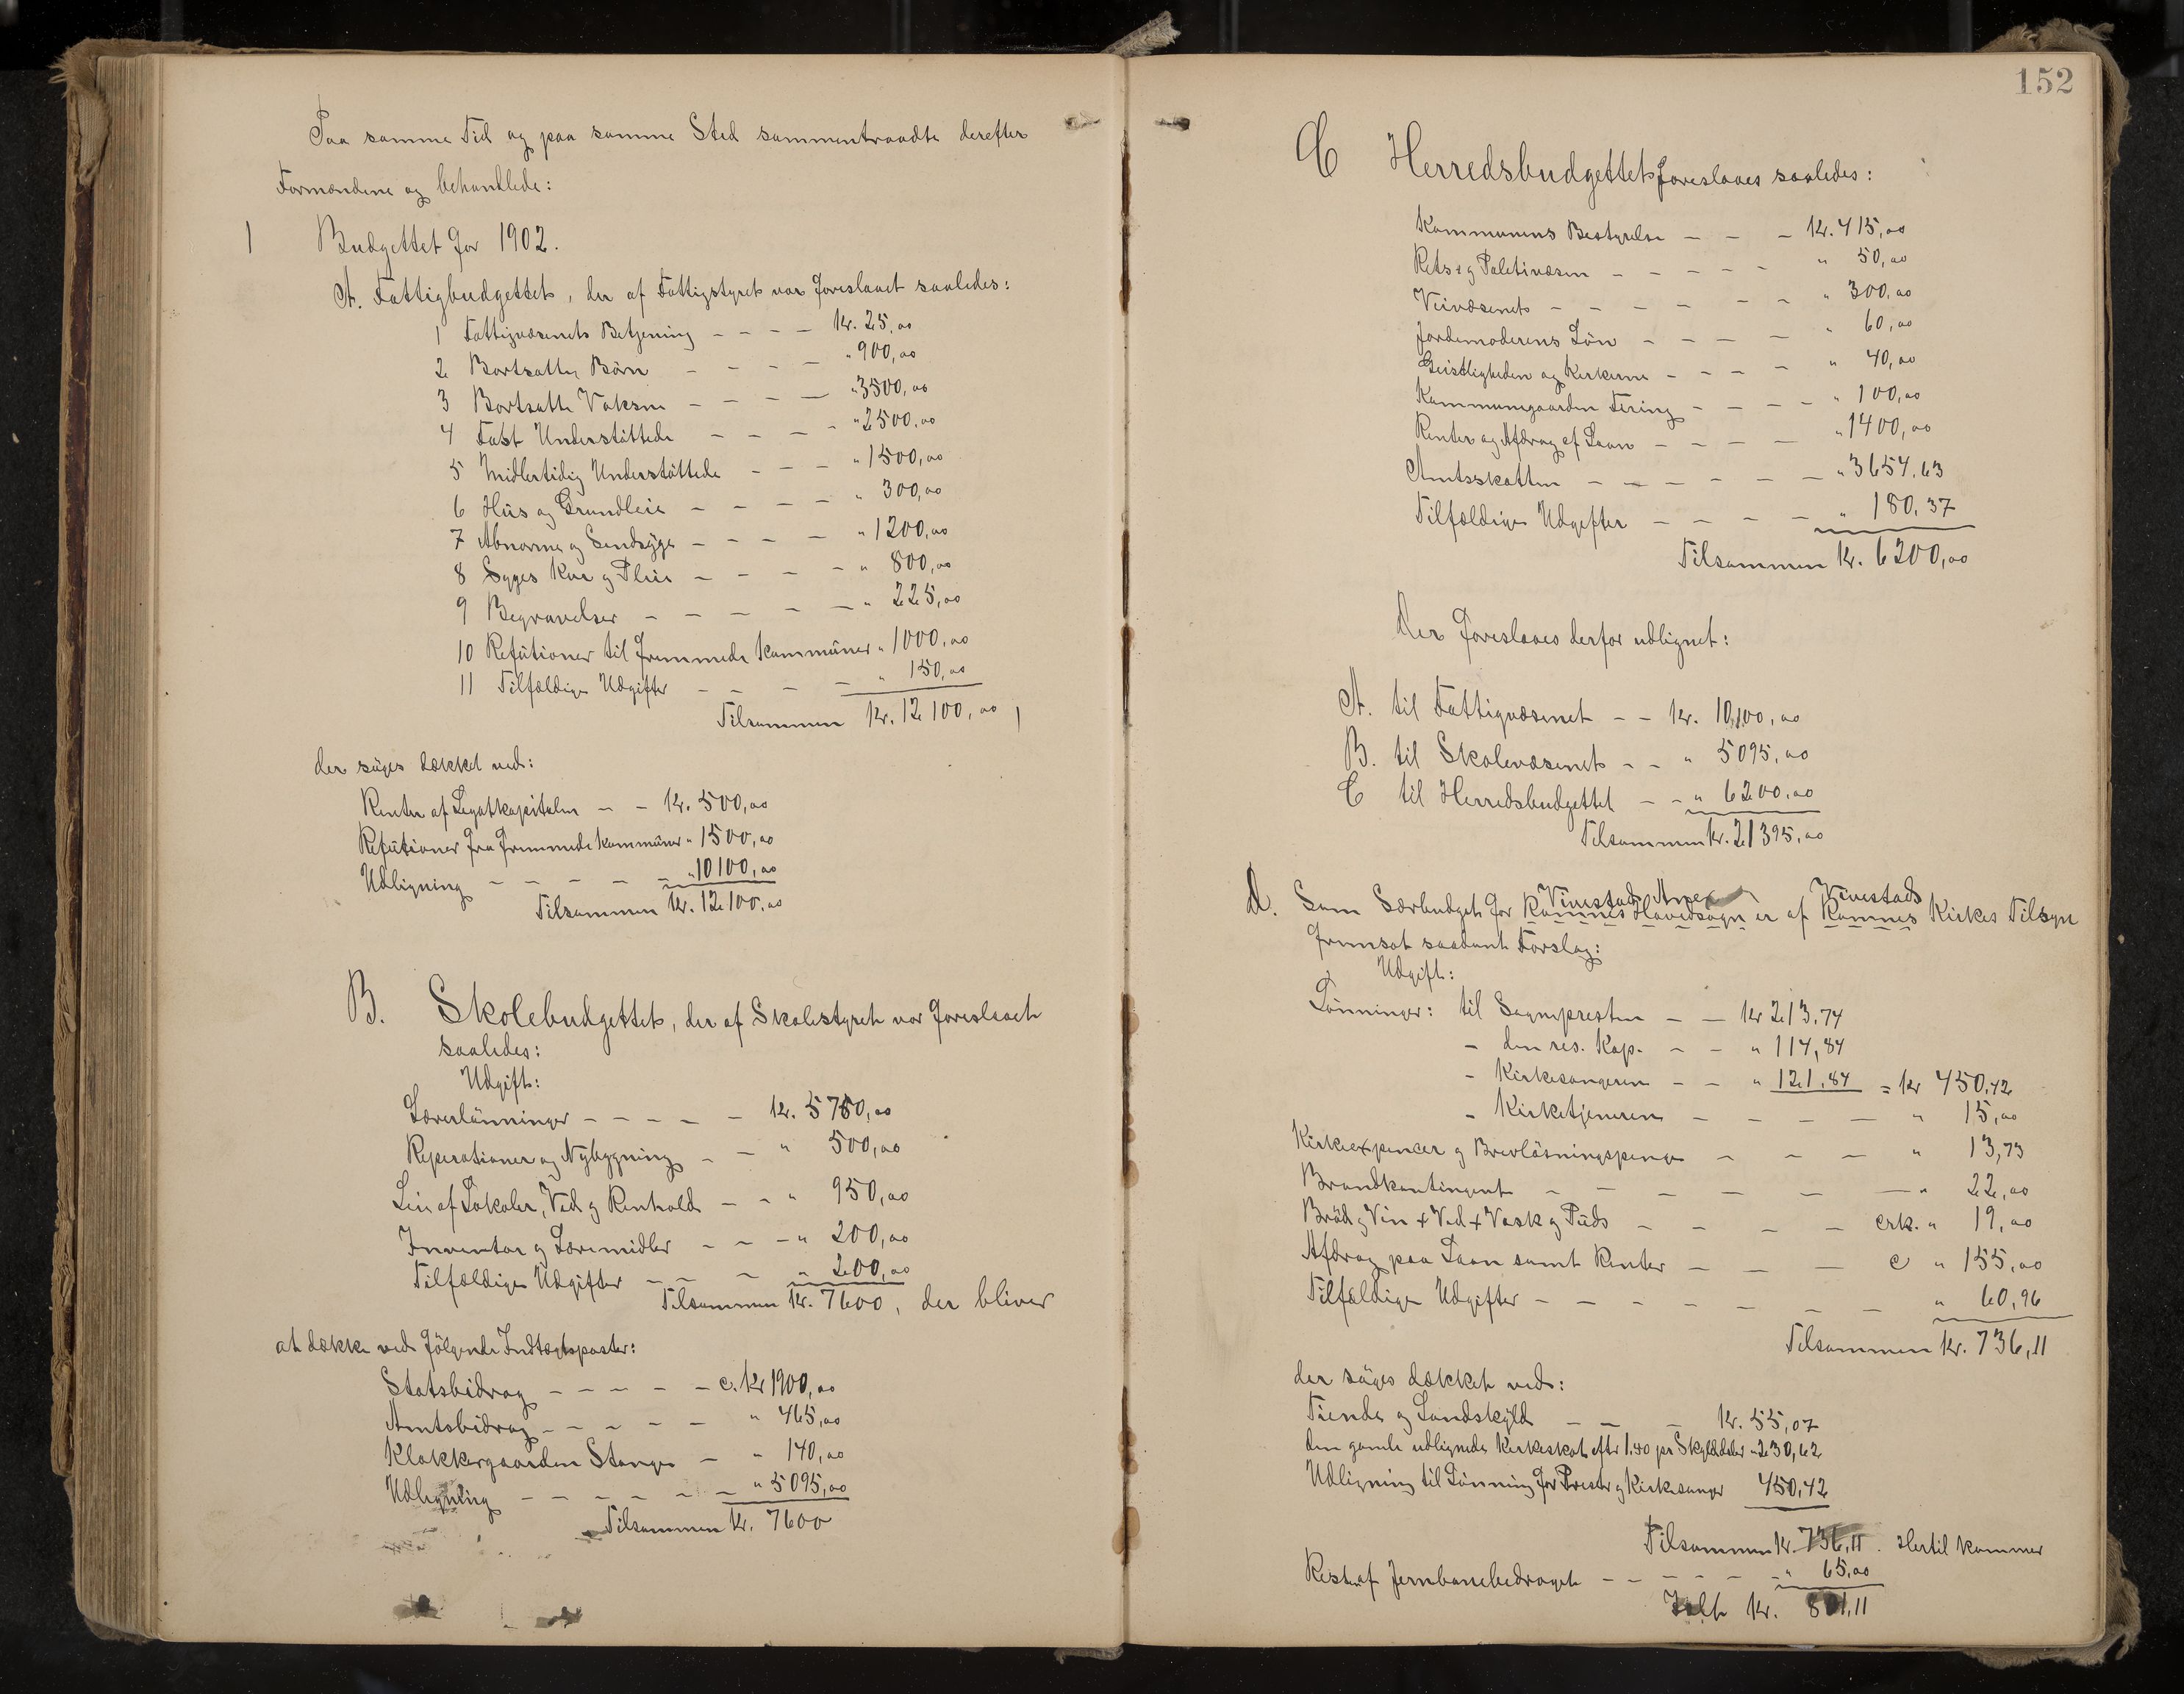 Paa samme Tid og paa samme Sted sammentraadte derefter
Formændene og behandlede:
1 Budgettet for 1902.
A. Fattigbudgettet, der af Fattigstyret var foreslaaet saaledes:
1 Fattigvæsenets Betjening - - - - Kr. 25,00
2 Bortsatte Börn - - - - " 900,00
3 Bortsatte Voksne - - - - " 3500,00
4 Fast Understöttede - - - - " 2500,00
5 Midlertidig Understöttede - - - " 1500,00
6 Hus og Grundleie - - - - " 300,00
7 Abnorme og Sindsyge - - - - " 1200,00
8 Syges Kur og Pleie - - - - " 800,00
9 Begravelser - - - - - " 225,00
10 Refutioner til fremmede Kommuner " 1000,00
11 Tilfældige Udgifter - - - - " 150,00
Tilsammen Kr. 12100,00
der söges dækket ved:
Renter af Legatkapitalen - - Kr. 500,00
Refutioner fra fremmede Kommuner " 1500,00
Udligning - - - - - " 10100,00
Tilsammen Kr. 12100,00
B. Skolebudgettet, der af Skolestyret var foreslaaet
saaledes:
Udgift:
Lærerlönninger - - - - - Kr. 5750,00
Reperationer og Nybygning - - " 500,00
Leie af Lokaler, Ved og Renhold - - " 950,00
Inventar og Læremidler - - - " 200,00
Tilfældige Udgifter - - - " 200,00
Tilsammen Kr. 7600, der bliver
at dække ved fölgende Indtægtsposter:
Statsbidrag - - - - - c. Kr 1900,00
Amtsbidrag - - - - - " 465,00
Klokkergaarden Stange - " 140,00
Udligning - - - - - - " 5095,00
Tilsammen Kr. 7600
152
C Herredsbudgettet foreslaaes saaledes:
Kommunens Bestyrelse - - - Kr. 415,00
Rets og Politivæsen - - - - - " 50,00
Veivæsenet - - - - - - " 300,00
Jordemoderens Lön - - - - " 60,00
Geistligheden og Kirkerne - - - - " 40,00
Kommunegaarden Fering - - - - " 100,00
Renter og Afdrag af Laan - - - - " 1400,00
Amtsskatten - - - - - - " 3654.63
Tilfældige Udgifter - - - - " 180,37
Tilsammen Kr. 6200,00
Der foreslaaes derfor udlignet:
A. til Fattigvæsenet - - Kr. 10,100,00
B. til Skolevæsenet - - " 5095,00
C til Herredsbudgettet - - " 6200.00
Tilsammen Kr. 21395,00
Vivestad Anex Vivestads
D. Som Særbudget for Ramnes Hovedsogn er af Ramnes Kirkes Tilsyn
fremsat saadant Forslag:
Udgift:
Lönninger: til Sognepresten - - Kr 213,74
- den res. Kap. - - " 114,84
- Kirkesangeren - - " 121,84 = Kr 450,42
- Kirketjeneren - - - - " 15,00
Kirkeexpencer og Brevlösningspenge - - - " 13,73
Brandkontingent - - - - - - " 22,00
Bröd og Vin + Ved + Vask og Puds - - - - crk. " 19,00
Afdrag paa Laan samt Renter - - - c " 155,00
Tilfældige Udgifter - - - - - - - - " 60,96
Tilsammen Kr. 736,11
der söges dækket ved:
Tiende og Landskyld - - - Kr. 55,07
den gamle udlignede Kirkeskat efter 1.40 pr Skylddaler " 230,62
Udligning til Lönning for Prester og Kirkesanger 450,42
Tilsammen Kr. 736,11. Hertil kommer
Rest af Jernbanebidraget - - - - - " 65,00
Ialt Kr. 801,11